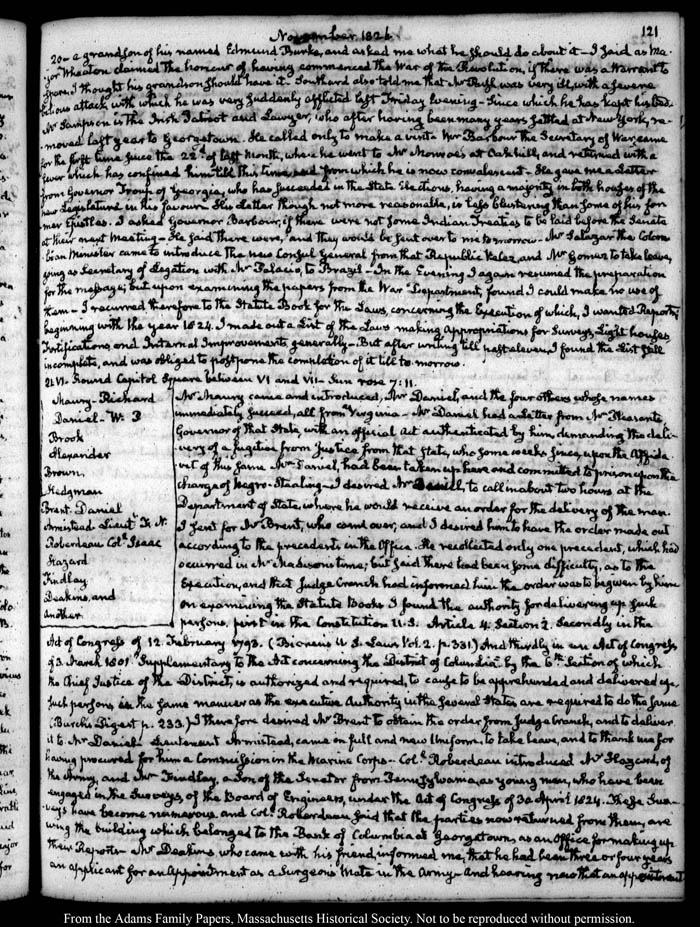 November 1826.
121
20 - a grandson of his named Edmund Burke, and asked me what he should do about it - I said as Ma-
jor Wheaton claimed the honour of having commenced the War of the Revolution, if there was a Warrant to
spare I thought his grandson should have it - Southard also told me that Mr Rush was very ill, with a severe
bilious attack with which he was very suddenly afflicted last Friday Evening - Since which he has kept his bed -
Mr Sampson is the Irish Patriot and Lawyer, who after having been many years settled at New York, re-
moved last year to Georgetown. He called only to make a visit. Mr Barbour the Secretary of War, came
for the first time since the 22d of last Month, when he went to Mr Monroe's at Oakhill, and returned with a
fever which has confined him till this time and from which he is now convalescent - He gave me a Letter
from Governor Troup of Georgia, who has succeeded in the State Elections, having a majority in both houses of the
new Legislature in his favour - His Letter though not more reasonable, is less blustering than some of his for-
mer Epistles. I asked Governor Barbour, if there were not some Indian Treaties to be laid before the Senate
at their next Meeting - He said there were, and they would be sent over to me tomorrow - Mr Salazar the Colom-
bian Minister came to introduce the new Consul General from that Republic Velez, and Mr Gomez to take leave,
going as Secretary of Legation with Mr Palacio, to Brazil - In the Evening I again resumed the preparation
for the message; but upon examining the papers from the War Department, found I could make no use of
them - I recurred therefore to the Statute Book for the Laws, concerning the Execution of which, I wanted Reports;
beginning with the year 1824. I made out a List of the Laws making Appropriations for Surveys, Light houses,
Fortifications, and Internal Improvements generally - But after writing till past eleven, I found the List still
incomplete, and was obliged to postpone the completion of it till tomorrow.
21. VI. Round Capitol Square between VI and VII - Sun rose 7:11.
Maury - Richard
Daniel - W. B
Brook
Alexander
Brown,
Hedgman
Brent. Daniel
Armistead Lieutt. F. N.
Roberdeau Coll. Isaac
Hazard
Findlay
Deakins, and
Another
Mr Maury came and introduced, Mr Daniel, and the four others whose names
immediately succeed, all from Virginia - Mr Daniel had a Letter from Mr Pleasants
Governor of that State, with an official Act authenticated by him, demanding the deli-
very of a fugitive from Justice from that State, who some weeks since, upon the Affida-
vit of this same Mr Daniel, had been taken up here and committed to prison upon the
charge of Negro-Stealing - I desired Mr Daniel, to call in about two hours at the
Department of State, where he would receive an order for the delivery of the man.
I sent for Mr Brent, who came over, and I desired him to have the order made out
according to the precedents in the Office. He recollected only one precedent, which had
occurred in Mr Madison's time; but said there had been some difficulty, as to the
Execution, and that Judge Cranch had informed him the order was to be given by him
On examining the Statute Books I found the authority for delivering up such
persons, first in the Constitution U.S. Article 4. Section 2. Secondly in the
Act of Congress of 12. February 1793. (Bioren's U.S. Laws Vol. 2. p. 331.) And thirdly in an Act of Congress
of 3. March 1801 "Supplementary to the Act concerning the District of Columbia", by the 6th Section of which
the Chief Justice of the District, is authorized and required, to cause to be apprehended and delivered up,
such persons, in the same manner as the executive Authority in the several States are required to do the same
(Burch's Digest p. 233.) I therefore desired Mr Brent to obtain the order from Judge Cranch, and to deliver
it to Mr Daniel. Lieutenant Armistead, came in full and new Uniform, to take leave, and to thank me for
having procured for him a Commission in the Marine Corps - Coll. Roberdeau introduced Mr Hazard, of
the Army, and Mr Findlay, a Son of the Senator from Pennsylvania, as young men, who have been
engaged in the Surveys of the Board of Engineers, under the Act of Congress of 30 April 1824. These Sur-
veys have become numerous, and Coll. Roberdeau said that the parties now returned from them, are
using the building which belonged to the Bank of Columbia at Georgetown, as an Office for making up
their Reports - Mr Deakins, who came with his friend, informed me, that he had been three or four years
an applicant for an Appointment as a Surgeons Mate in the Army - And hearing now that an appointment
From the Adams Family Papers, Massachusetts Historical Society. Not to be reproduced without permission.